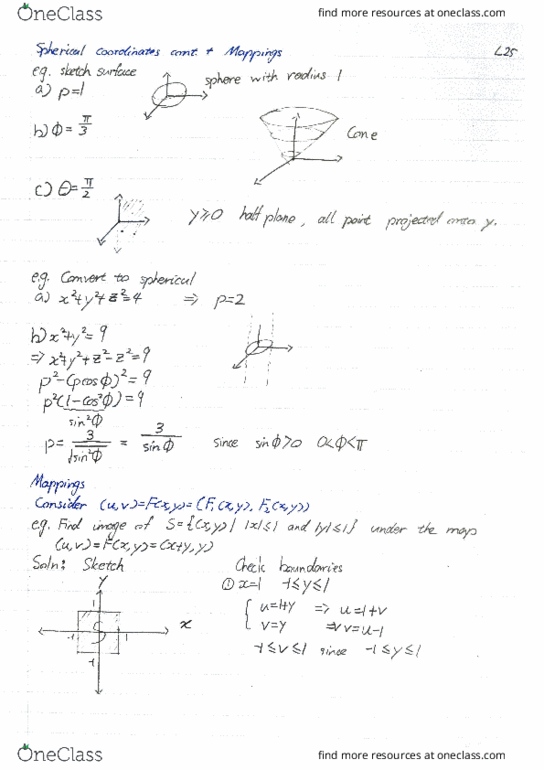 OneClass find more resources at oneclass.com
Spherical Coordinates cont + Mappings L25
eg. sketch surface
a) ρ=1 sphere with radius 1
b) Φ= π/3 Cone
c) Θ= π/2
y≥0 half plane, all point projected onto y.
e.g. Convert to spherical
a) x²+y²+z²=4 => ρ=2
b) x²+y²=9
=> x²+y²+z²-z²=9
ρ²-(ρcosΦ)²=9
ρ²(1-cos²Φ)=9
sin²Φ
ρ= 3/√sin²Φ = 3/sinΦ since sinΦ>0 0<Φ<π
Mappings
Consider (u,v)=F(x,y)=(F₁(x,y), F₂(x,y))
e.g. Find image of S={(x,y)| |x|≤1 and |y|≤1} under the map
(u,v)=F(x,y)=(x+y,y)
Soln: Sketch Check boundaries
y ① x=1 -1≤y≤1
1 { u=1+y => u=1+v
-1 S 1 x v=y => v=u-1
-1 -1≤v≤1 since -1≤y≤1
OneClass find more resources at oneclass.com